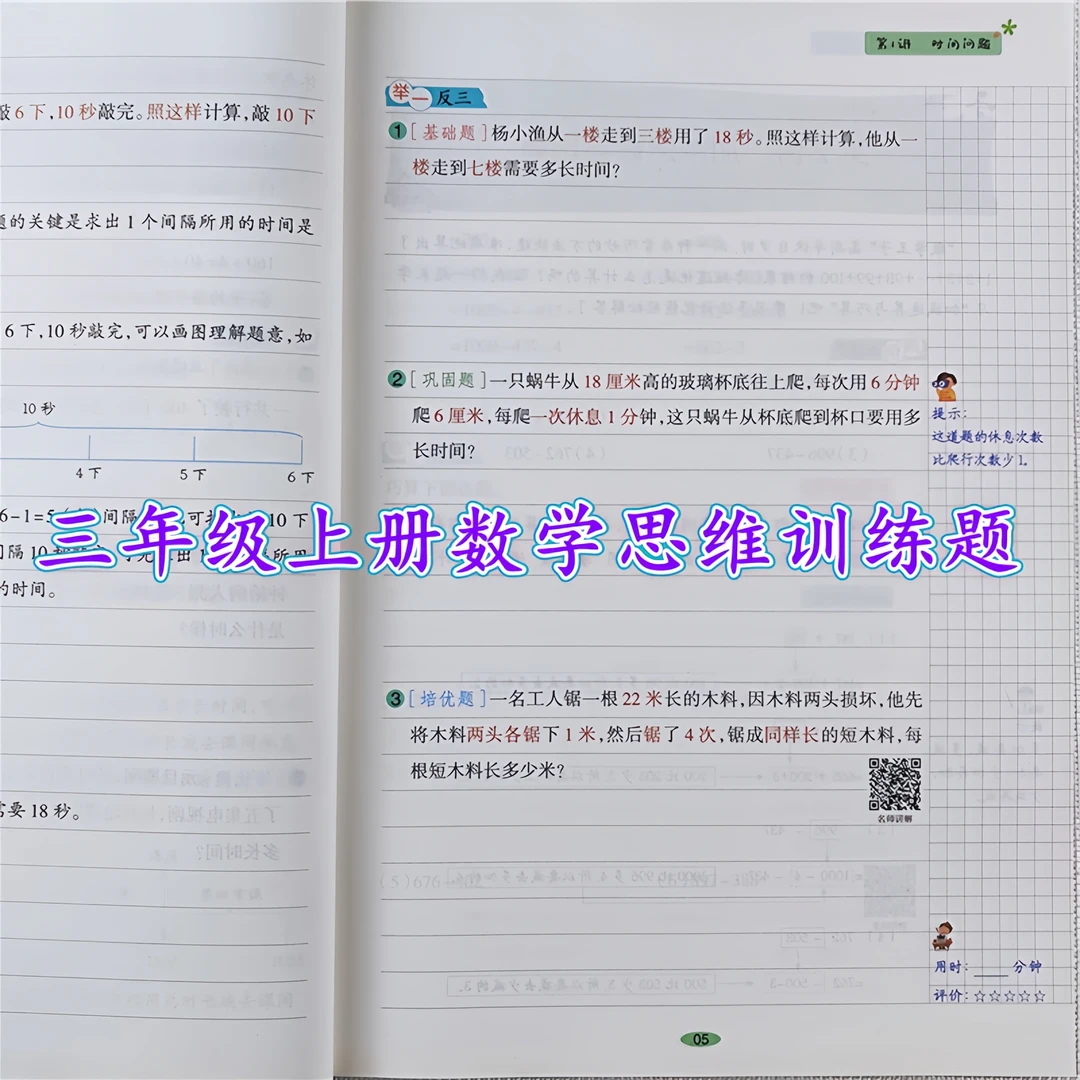 敲6下,10秒敲完。照这样计算,敲10下
题的关键是求出1个间隔所用的时间是
6下,10秒敲完,可以画图理解题意,如
10秒
4下 5下 6下
6-1=5
间隔
10下
间隔10
出1
所用
的时间。
需要18秒。
第1讲 时间问题
举一反三
1[基础题]杨小渔从一楼走到三楼用了18秒。照这样计算,他从一
楼走到七楼需要多长时间?
2[巩固题]一只蜗牛从18厘米高的玻璃杯底往上爬,每次用6分钟
爬6厘米,每爬一次休息1分钟,这只蜗牛从杯底爬到杯口要用多
长时间?
提示:
这道题的休息次数
比爬行次数少1。
三年级上册数学思维训练题
3[培优题]一名工人锯一根22米长的木料,因木料两头损坏,他先
将木料两头各锯下1米,然后锯了4次,锯成同样长的短木料,每
根短木料长多少米?
名师讲解
用时:____分钟
评价:☆☆☆☆☆
05